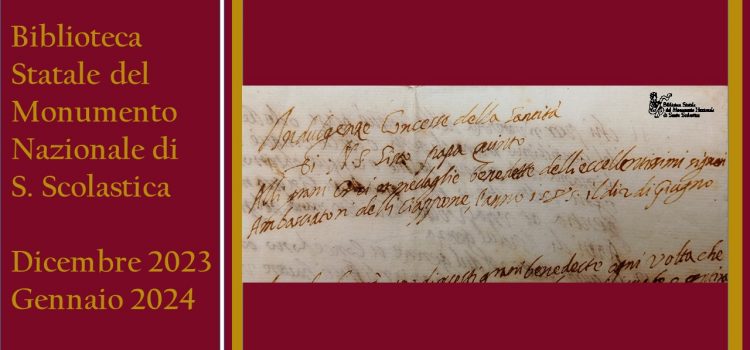 Biblioteca
Statale del
Monumento
Nazionale di
S. Scolastica
Dicembre 2023
Gennaio 2024
Biblioteca Statale
del Monumento Nazionale
di Santa Scolastica
Indulgenze Concesse della Santità
di N. S. Sisto papa quinto
Alli grani Croci et medaglie benedette dell eccellentissimi signori
Ambasciatori delli Giappone, l'anno 1585 il di 2 di Giugno
di questi grani benedette ogni volta che